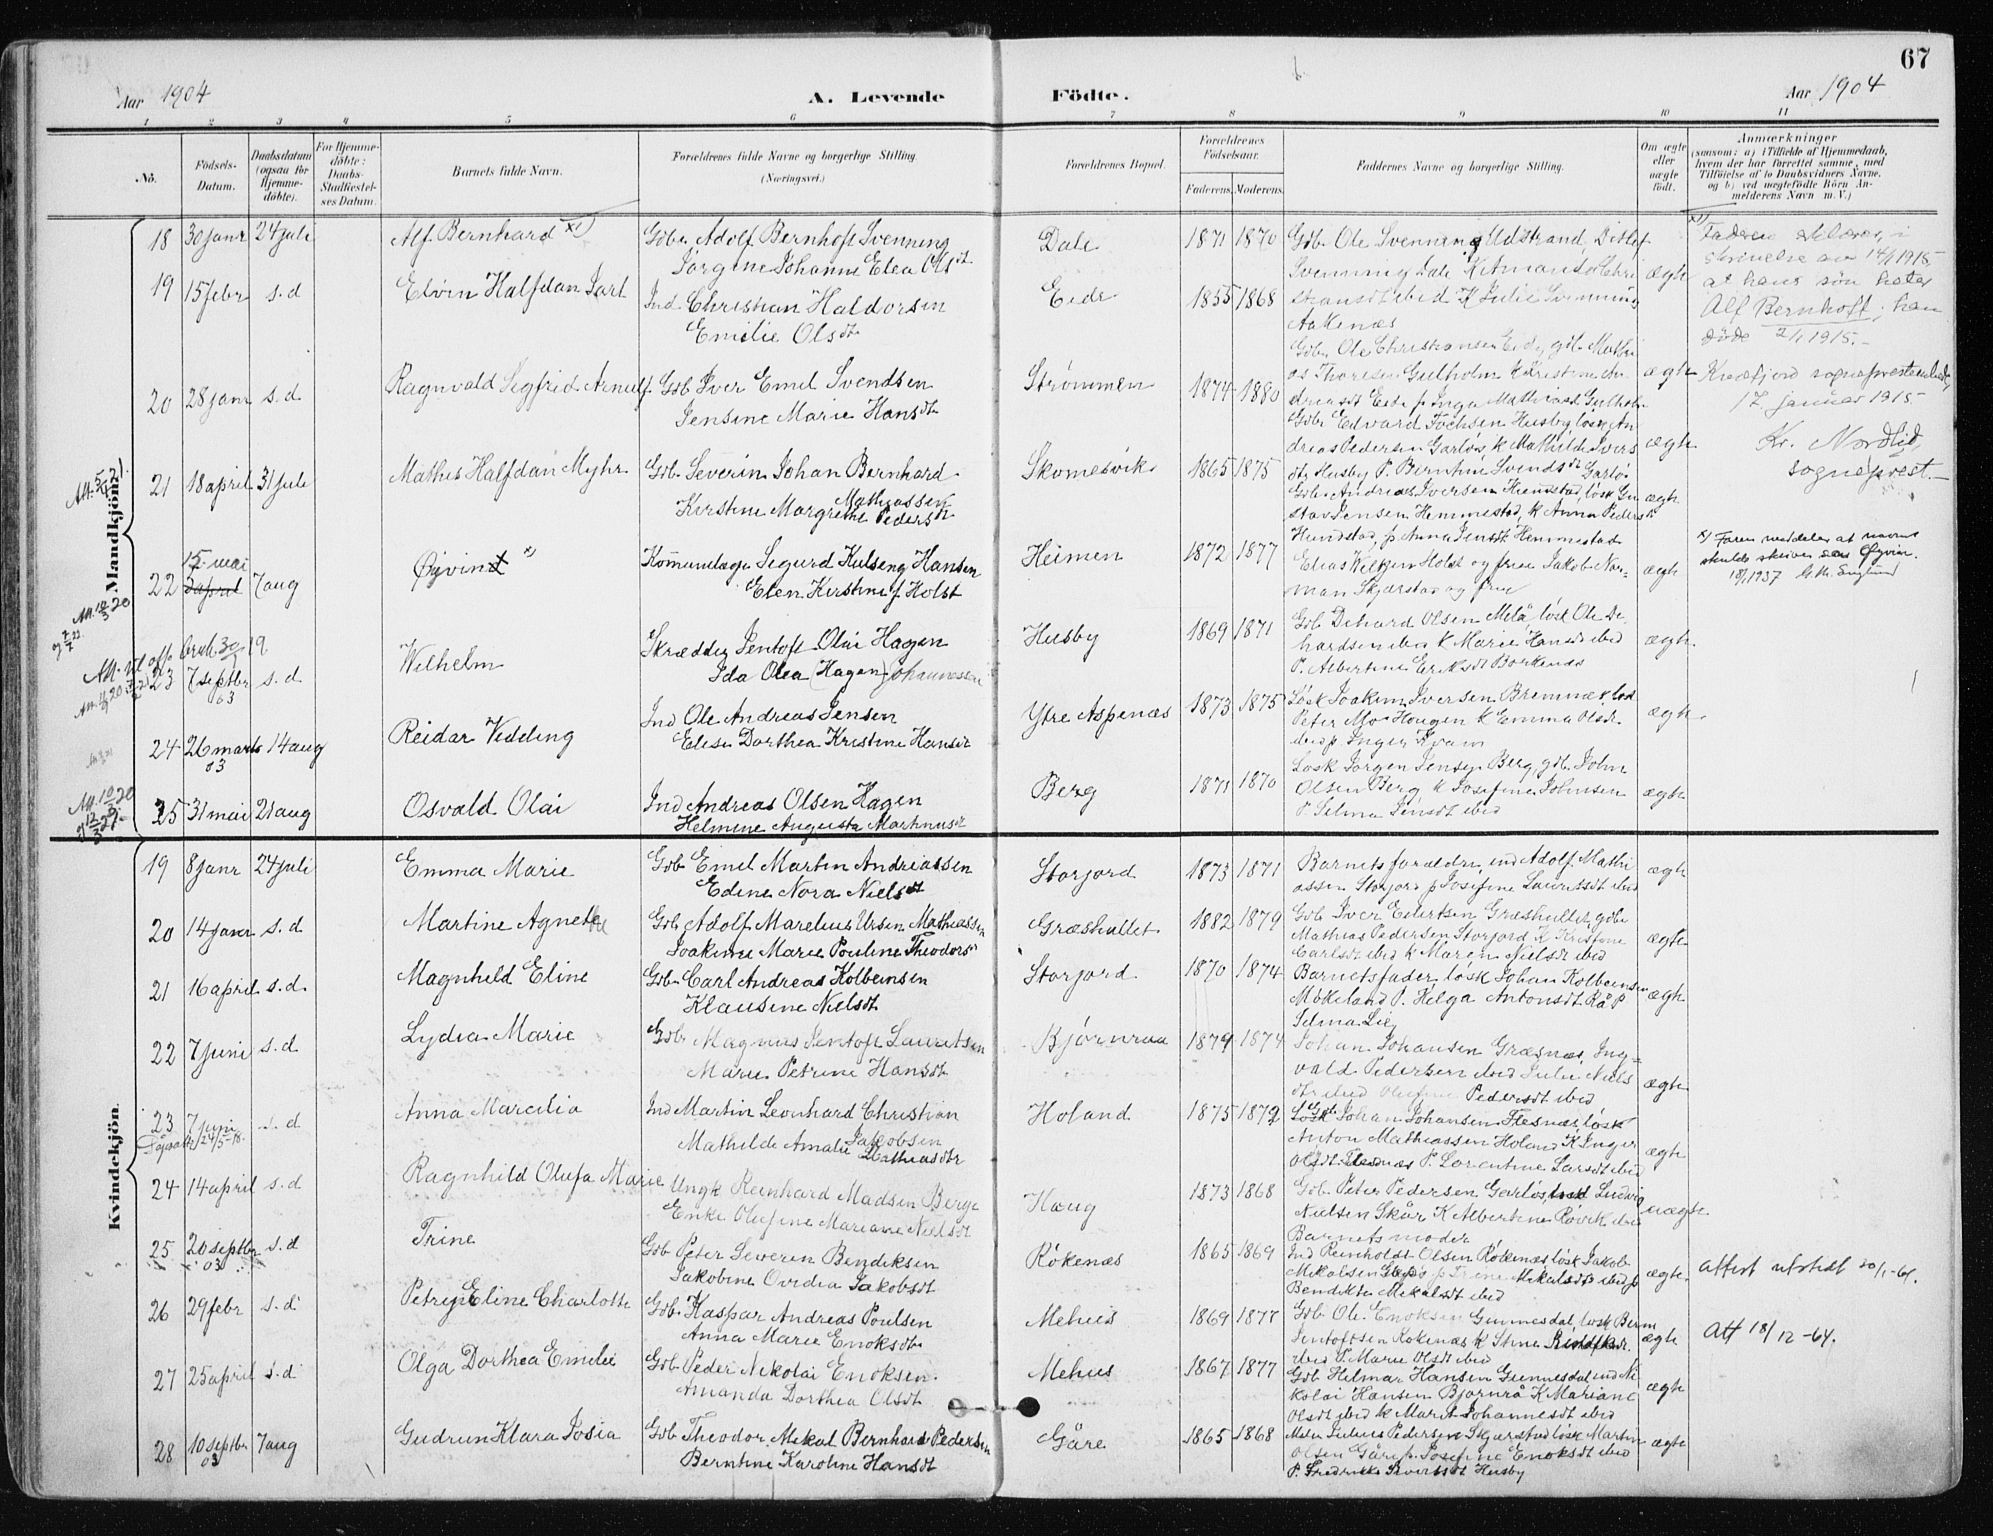 67
Aar 1904
A. Levende
Födte.
Aar 1904
1 2 3 4 5 6 7 8 9 10 11
No.
Födsels-Datum.
Daabsdatum (ogsaa for Hjemmedöbte).
For Hjemmedöbte: Daabs-Stadfæstelses Datum.
Barnets fulde Navn.
Forældrenes fulde Navne og borgerlige Stilling. (Næringsvei.)
Forældrenes Bopæl.
Forældrenes Födselsaar.
Faderens. Moderens.
Faddernes Navne og borgerlige Stilling.
Om ægte eller uægte födt.
Anmærkninger
(saasom: a) i Tilfælde af Hjemmedaab, hvem der har forrettet samme, med Tilföielse af to Daabsvidners Navne, og b) ved uægtefödte Börn Anmelderens Navn m. V.)
Mandkjön.
18 30 janr 24 juli Alf Bernhard x1) Gdbr Adolf Bernhoft Svenning
Jørgine Johanne Elea Olsdt
Dale 1871 1870 Gdb. Ole Svenning Udstrand Ditlef
Svenning Dale K Amanda Chri
stiansdt ibid K Julie Svenning
Aakenæs
ægte
x1) Faderen erklærer i
skrivelse av 14/1 1915
at hans søn heter
Alf Bernhoft; han
døde 2/1 1915.-
Kvæfjord sogneprestembede,
17. januar 1915
Kr. Nordlid,
sogneprest.
19 15 febr s.d Elvin Halfdan Jarl Ind Christian Haldorsen
Emilie Olsdt
Eide 1855 1868 Gdbr Ole Christiansen Eide, gdb. Mathi
as Thoresen Gulholm K Kristine An
driasdt Eide p Inga Mathiasdt Gulholm
ægte
20 28 janr s.d Ragnvald Segfrid Arnulf Gdb Iver Emil Svendsen
Jensine Marie Hansdt
Strømmen 1874 1880 Gdbr Edvard Fochsen Husby, løsk An
dreas Pedersen Garløs, K Mathilde Ivers
dt Husby P. Bernhine Svendsdt Garløs
ægte
21 18 april 31 juli Mathis Halfdan Myhr Gdb. Severin Johan Bernhard
Mathiassen
Kirstine Margrethe Pedersdt
Skomesvik 1865 1875 Gdb. Andreas Iversen Hemmestad, løsk Gu
stav Jensen Hemmestad, K Anna Pedersdt
Hundstad, p Anna Jensdt Hemmestad
ægte
22 15 mai 2 april 7 aug Øyvind x) Kommunelæge Segurd Hulseng Hansen
Elen Kirstine f Holst
Heimen 1872 1877 Elias Holst og frue Jakob Nor-
man Skjærstad og frue
ægte
x) Faren meddeler at navnet
skulde skrives som Øyvin.
18/1 1937
23 7 septbr 03 s.d Wilhelm Skrædder Jentoft Olai Hagen
Ida Olea (Hagen) Johannessen
Husby 1869 1871 Gdb Dehard Olsen Melå løsk Ole De
hardsen ibid K Marie Hansdt ibid
P. Albertine Eriksdt Borkenæs
ægte
24 26 marts 03 14 aug Reidar Vedding Ind Ole Andreas Jensen
Elise Dorthea Kristine Hansdt
Ytre Aspenæs 1873 1875 Løsk Joakim Iversen Bremnæs, løsk
Peter Moe Haugen K Emma Olsdt
ibid p. Inger Kvam
ægte
25 31 mai 21 aug Osvald Olai Ind Andreas Olsen Hagen
Helmine Augusta Martinusdt
Berg 1871 1870 Løsk Jørgen Jensen Berg, gdb. John
Olsen Berg K Josefine Johnsen
P. Selma Jensdt ibid
ægte
Kvindekjön.
19 8 janr 24 juli Emma Marie Gdb Emil Martin Andreassen
Edine Nora Nielsdt
Storjord 1873 1871 Barnets forældre, ind Adolf Mathi
assen Storjord p Josefine Lauritsdt ibid
ægte
20 14 janr s.d Martine Agnethe Gdb Adolf Marelius Ursin Mathiassen
Joakime Marie Pouline Theodorsdt
Græshullet 1882 1879 Gdb Iver Edertsen Græshullet gdbr
Mathias Pedersen Storjord K Kristine
Carlsdt ibid K Maren Nielsdt ibid
ægte
21 16 april s.d. Magnhild Eline Gdb. Carl Andreas Kolbensen
Klausine Nielsdt
Storjord 1870 1874 Barnets fader, løsk Johan Kolbeinsen
Møkeland P. Helga Antonsdt Rå P
Selma Lie
ægte
22 7 juni s.d Lydia Marie Gdbr Magnus Jentoft Lauritsen
Marie Petrine Hansdt
Bjørnraa 1879 1874 Johan Johansen Græsnæs, Ing-
vald Pedersen ibid Julie Niels
dtr ibid Olufine Pedersdt ibid
ægte
23 7 juni s.d Anna Marcelia Ind Martin Leonhard Christian
Jakobsen
Mathilde Amalie Mathiasdtr
Holand 1875 1872 Johan Johansen Flesnæs, løsk
Anton Mathiassen Holand K Inger
Olsdt Flesnæs P. Lorentine Larsdt ibid
ægte
24 14 april s.d Ragnhild Olufa Marie Ungk Reinhard Madsen Berge
Enke Olufine Mariane Nielsdt
Haug 1873 1868 Gdb. Peter Pedersen Garløs løsk Ludvig
Nielsen Skår K Albertine Røvik ibid
Barnets moder
uægte
25 20 septbr 03 s.d Trine Gdb Peter Severin Bendiksen
Jakobine Ovidia Jakobsdt
Røkenæs 1865 1869 Ind Reinholdt Olsen Røkenæs, løsk Jakob
Mikalsen p Trine Mikalsdt ibid p
Bendikte Mikalsdt ibid
ægte.
attest utstedt 20/1-61.
26 29 febr s.d Petrine Eline Charlotte Gdb. Kaspar Andreas Poulsen
Anna Marie Enoksdtr
Mehus 1869 1877 Gdb Ole Enoksen Gunnesdal, løsk Bernt
Jentoftsen Røkenæs K Stine
ibid P. Marie Olsdt ibid
ægte
Att 18/12-64.
27 25 april s.d Olga Dorthea Emelie Gdb. Peder Nikolai Enoksen.
Amanda Dorthea Olsdt
Mehus 1867 1877 Gdb Helmar Hansen Gunnesdal, ind Ni
kolai Hansen Bjørnrå K Mariane
Olsdt ibid K Marit Johannesdt ibid
ægte
28 10 septbr 03 7 aug Gudrun Klara Josia Gdb Theodor Mikal Bernhard Pedersen
Berntine Karoline Hansdt
Gåre 1865 1868 Julius Pedersen Skjærstad løsk Martin
Olsen Gåre p. Josefine Enoksdt ibid
P. Fredrikke Sivertsdt Husby
ægte